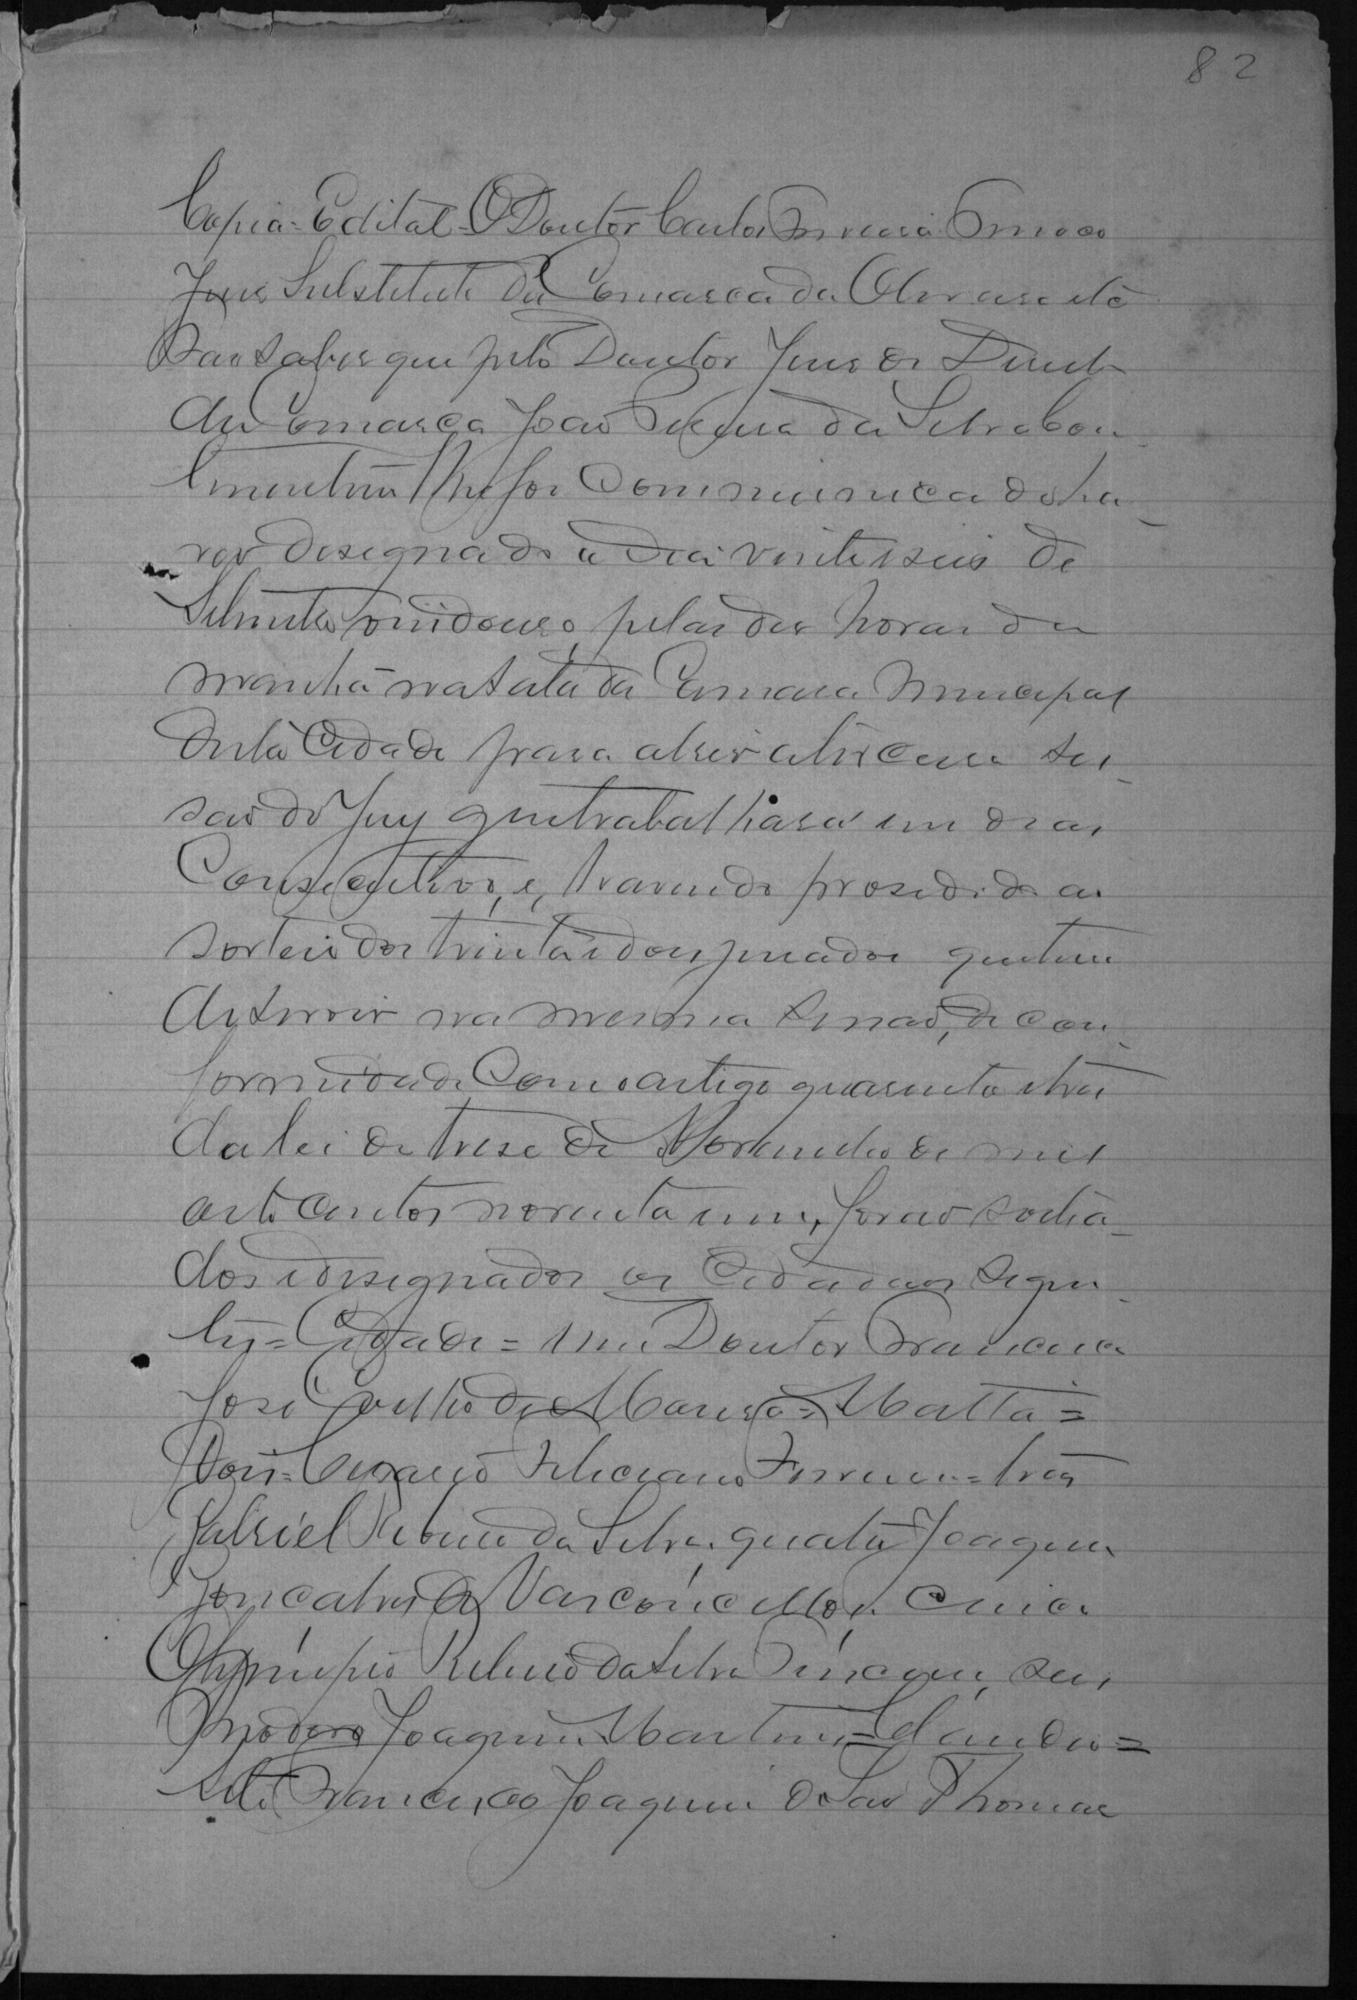 82
Copia = Edital = O Doutor Carlos Ferreira
Juis Substituto da Comarca da Oliveira etc
Faz saber que pelo Doutor Juis de Direito
da Comarca João Pereira da Silva Con-
tinentino lhe foi communicado ha-
ver designado o dia vinte e seis de
Setembro vindouro, pelas des horas da
manhã na sala da Camara Municipal
desta Cidade para abrir a terceira ses-
são do Jury que trabalhará em dias
Consecutivos, e, havendo prosedido ao
sorteio dos trinta e dous jurados que tem
de servir na mesma sessão, de con-
formidade Com o artigo quarenta e tres
da lei de trese de Novembro de mil
oito centos noventa um, forão sortia-
dos e designados os Cidadãos seguin-
tes = Cidade = um Doutor Francisco
José Coelho de Moura = Matta =
Dois = Feliciano Ferreira = tres
Gabriel Ribeiro da Silva, quatro Joaquim
Gonçalves de Vasconcellos, Cinco
Olympio Ribeiro da Silva, seis
Joaquim Martins = Claudio =
Sete Francisco Joaquim de São Thomas